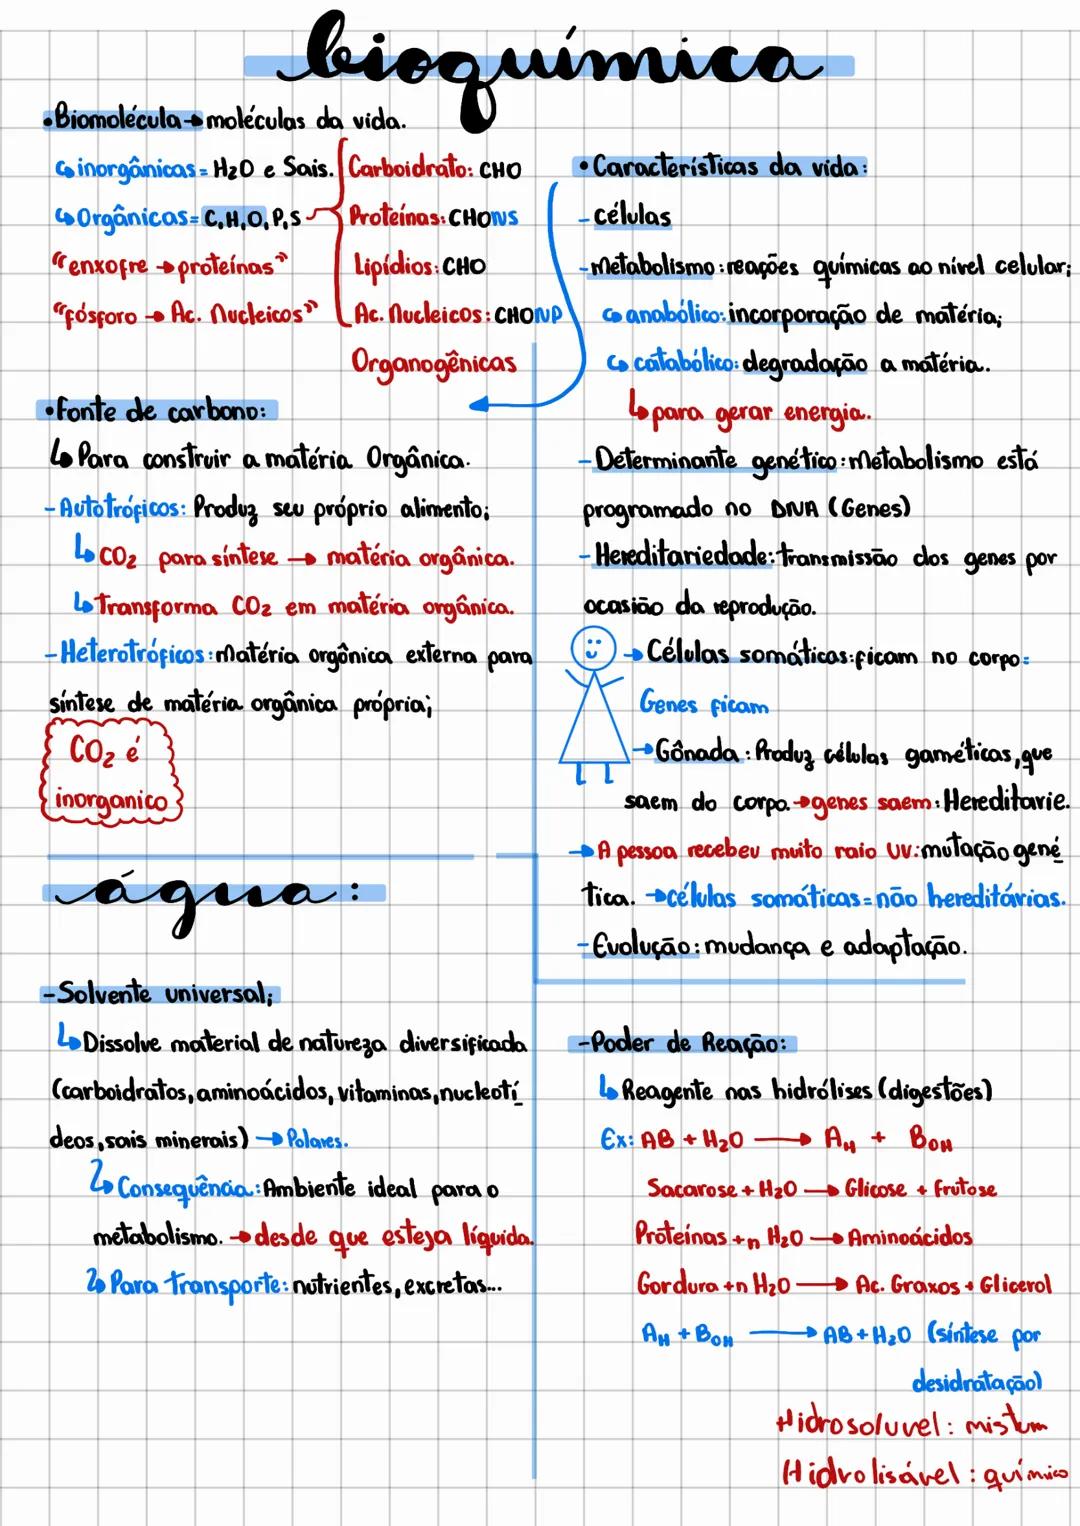 bioquímica
•Biomolécula→moléculas da vida.
↳inorgânicas= H₂O e Sais.
↳Orgânicas= C,H,O,P,S
"enxofre → proteínas"
"fósforo → Ac. Nucleicos"
Carboidrato: CHO
Proteínas: CHONS
Lipídios: CHO
Ac. Nucleicos: CHONP
Organogênicas
•Fonte de carbono:
↳Para construir a matéria Orgânica.
-Autotróficos: Produz seu próprio alimento;
↳CO₂ para síntese → matéria orgânica.
↳Transforma CO₂ em matéria orgânica.
-Heterotróficos: Matéria orgânica externa para
síntese de matéria orgânica própria;
CO₂ é
inorganico
•Características da vida:
-células
-Metabolismo: reações químicas ao nível celular;
↳anabólico: incorporação de matéria;
↳catabólico: degradação a matéria.
↳para gerar energia.
-Determinante genético: Metabolismo está
programado no DNA (Genes)
-Hereditariedade: transmissão dos genes por
ocasião da reprodução.
→Células somáticas: ficam no corpo=
Genes ficam
→Gônada: Produz células gaméticas, que
saem do corpo.→genes saem: Hereditarie.
→A pessoa recebeu muito raio UV: mutação gené
tica. →células somáticas=não hereditárias.
-Evolução: mudança e adaptação.
água:
-Solvente universal;
↳Dissolve material de natureza diversificada
(carboidratos, aminoácidos, vitaminas, nucleotí
deos, sais minerais) →Polares.
↳Consequência: Ambiente ideal para o
metabolismo. →desde que esteja líquida.
↳Para transporte: nutrientes, excretas...
-Poder de Reação:
↳Reagente nas hidrólises (digestões)
Ex: AB + H₂O → A_H + B_OH
Sacarose + H₂O → Glicose + frutose
Proteínas +n H₂O → Aminoácidos
Gordura +n H₂O → Ac. Graxos + Glicerol
A_H + B_OH → AB + H₂O (síntese por
desidratação)
Hidrosoluvel: mistura
Hidrolisável: químico